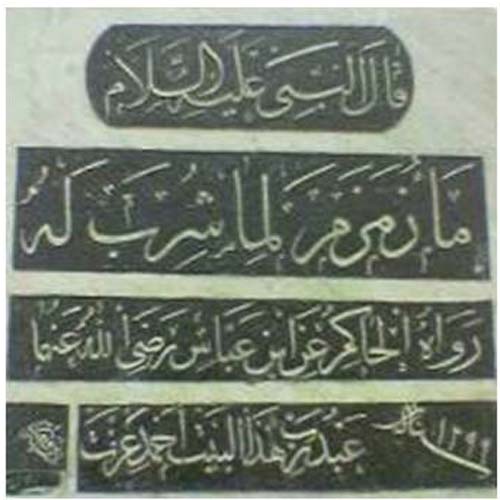 قال النبي عليه السلام
ماء زمزم لما شرب له
رواه الحاكم عن ابن عباس رضى الله عنهما
عبد رب هذا البيت احمد عزت ١٢٩٩